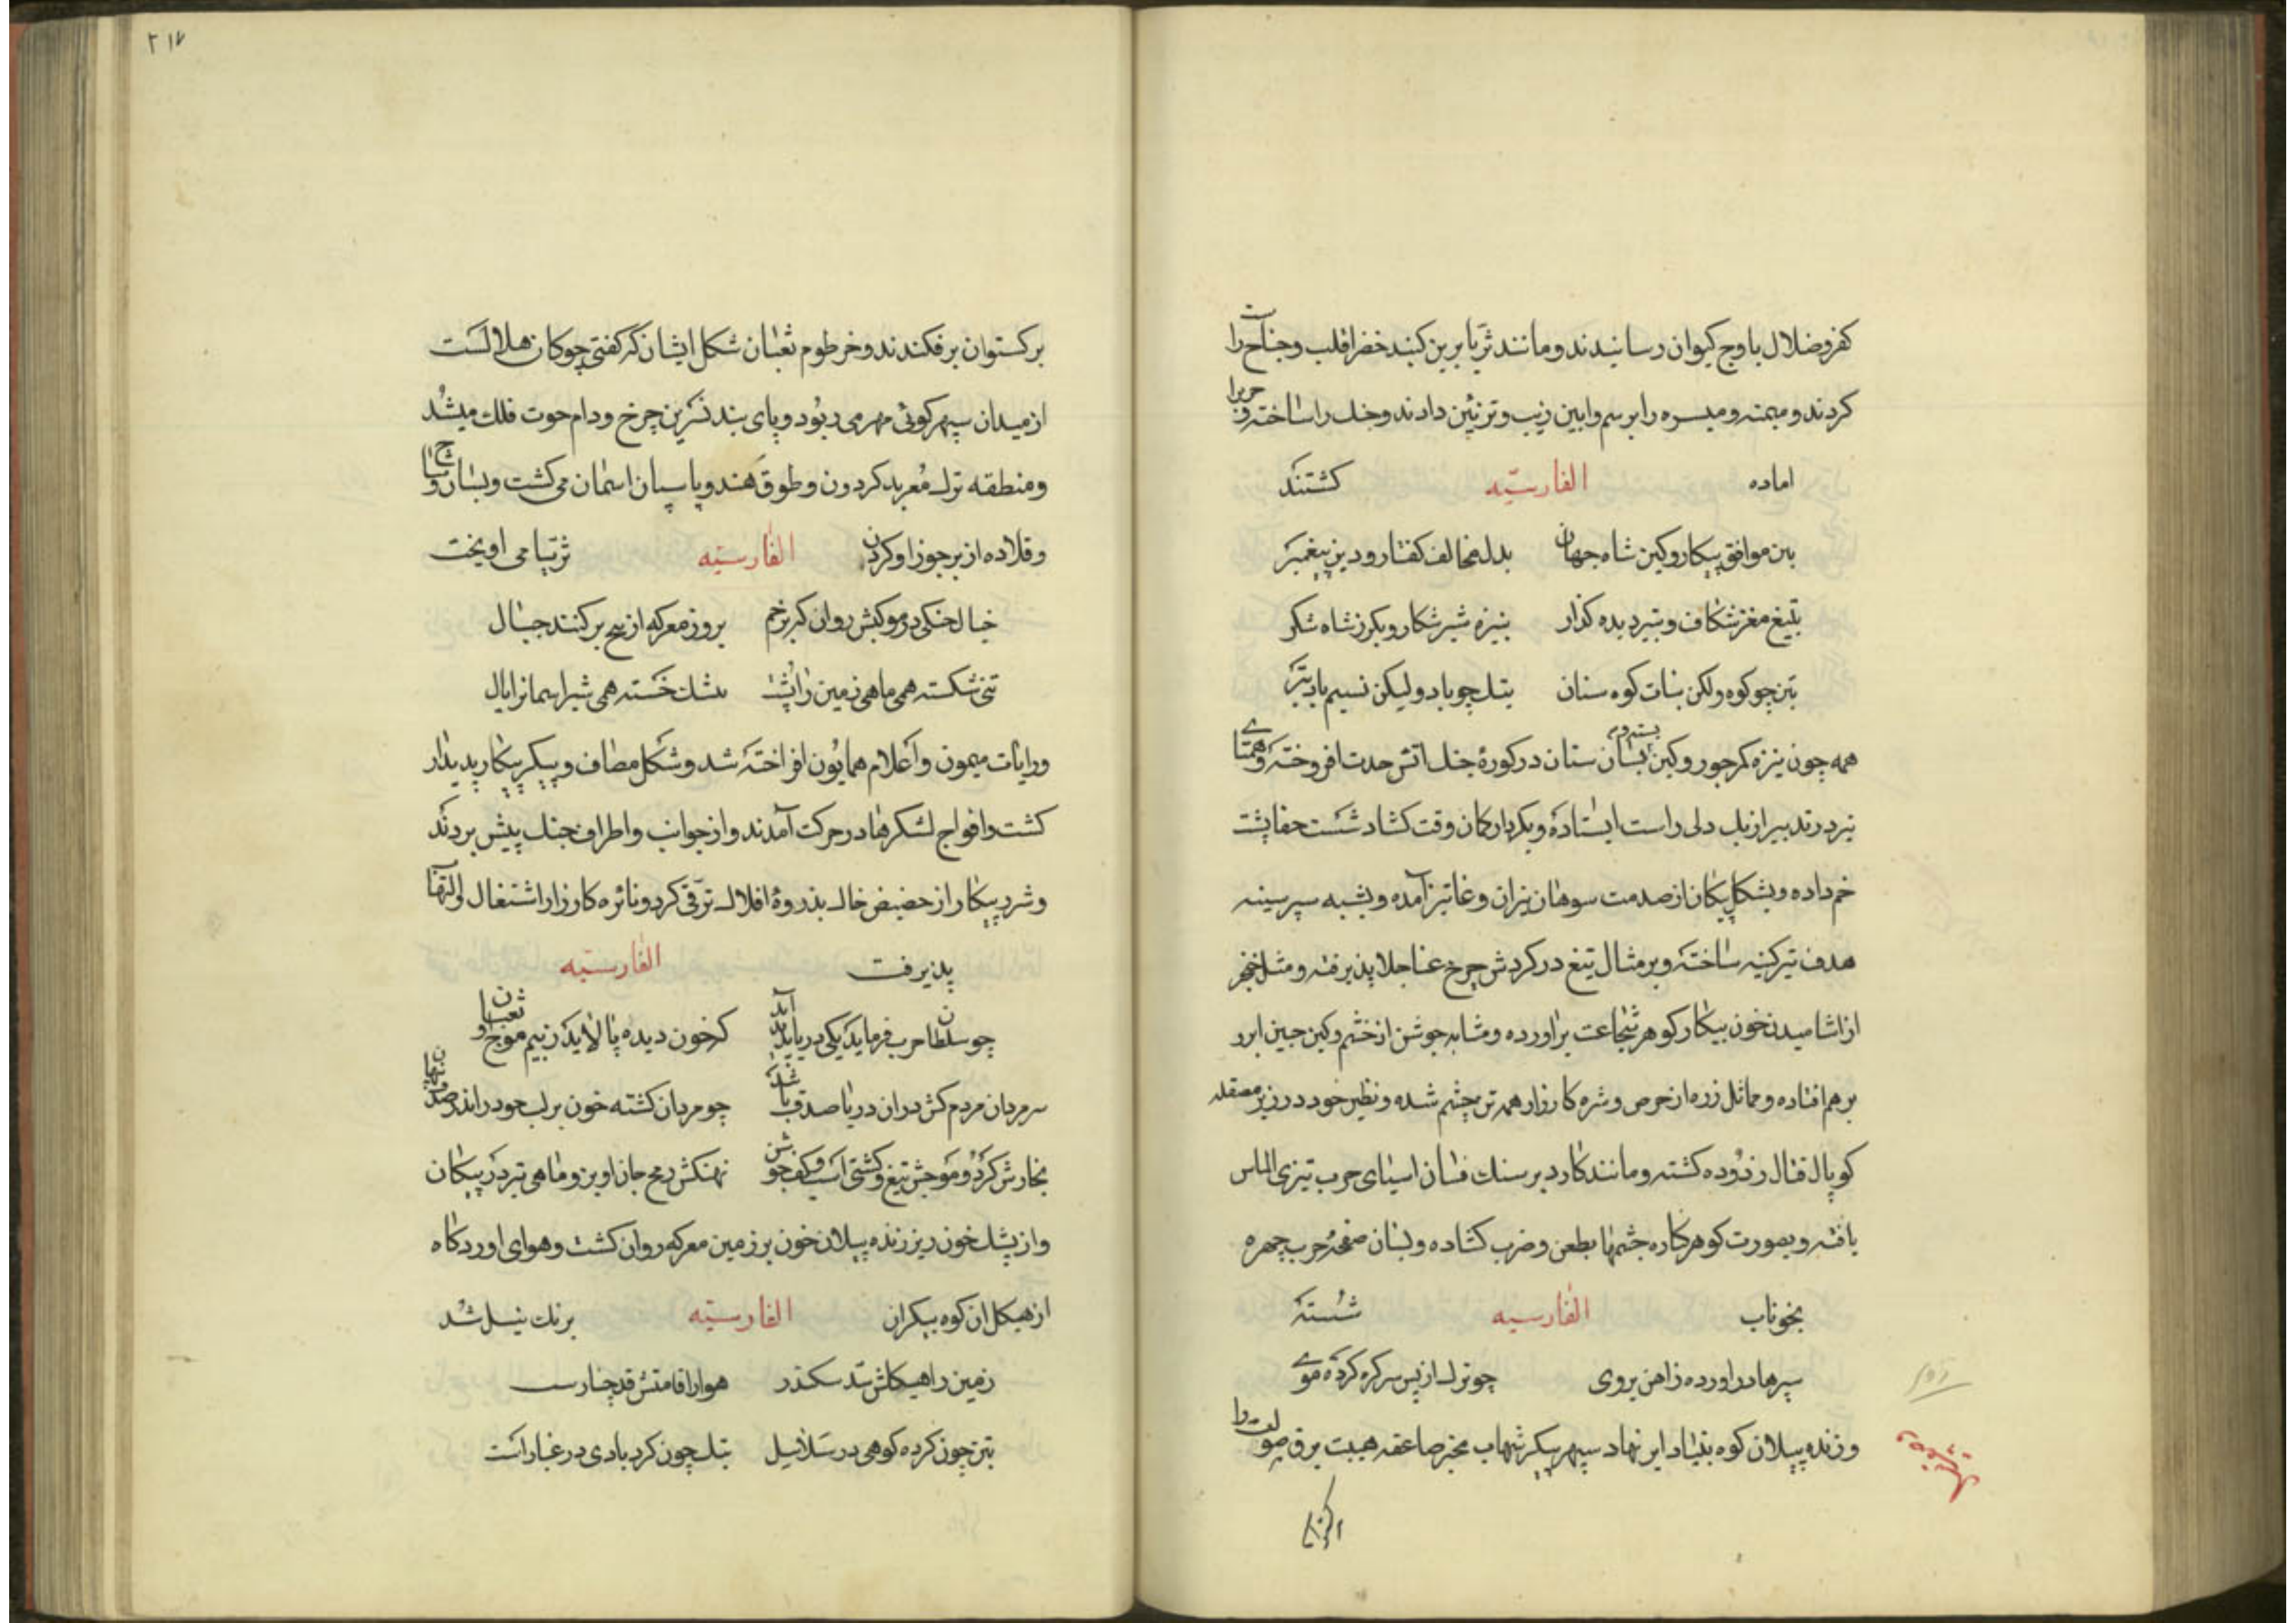 کفر و ضلال باوج کیوان رسانیدند و مانند ثریا برین کنبد خضرا قلب و جناح را
کردند و میمنه و میسره را برسم و ایین زیب و تزئین دادند و جنک را ساخته و حرب را
اماده الفارسیّه کشتند
بتن موافق پیکار و کین شاه جهان بدل مخالف کفتار و دین پیغمبر
بتیغ مغز شکاف و بتیر دیده کذار بنیزه شیر شکار و بکرز شاه شکر
بتن چو کوه ولکن بثبات کوه سنان بتک چو باد ولیکن نسیم باد بتر
همه چون نیزه کمر جور و کین بسته در بسان سنان در کورۀ جنک اتش حدت افروخته و همتای
تیر در تدبیر از یک دلی راست ایستاده و بکردار کمان وقت کشاد شست جفا پشت
خم داده و بشکل پیکان از صدمت سوهان نیران وغا تیز آمده و بشبه سپر سینه
هدف تیر کینه ساخته و بر مثال تیغ در کردش چرخ عنا جلا پذیرفته و مثل خنجر
از اشامیدن خون پیکار کوهر شجاعت براورده و مشابه جوشن از خشم و کین جبین ابرو
برهم افتاده و مماثل زره از حرص و شره کارزار همه تن چشم شده و نظیر خود در زیر مصقله
کوپال قتال زدوده کشته و مانند کارد بر سنک فسان اسیای حرب تیزی الماس
یافته و بصورت کوهر کاره چشمها بطعن و ضرب کشاده و بسان صفحۀ حرب چهره
بخوناب الفارسیه شسته
سپرها دراورده ز اهن بروی چو ترک از پس سر کره کرده موی
و زنده پیلان کوه بنیاد ابر نهاد سپهر پیکر شهاب مخبر صاعقه هیبت برق صولت را
۲۱۷
برکستوان برفکندند و خرطوم ثعبان شکل ایشان که کفتی چوکان هلالست
از میدان سپهر کوئی مهر می ربود و پای بند نسرین چرخ و دام حوت فلک میشد
و منطقه ترک معربد کردون و طوق هندو پاسبان اسمان می کشت و بسان وشاح
و قلاده از بر جوزا و کردن الفارسیّه ثریّا می اویخت
خیال جنکی در موکبش روان که بزخم بروز معرکه از بیخ برکنند جبال
تنی شکسته همی ماهی زمین را پشت خسته همی شیر اسمانرا یال
و رایات میمون و اعلام همایون افراخته شد و شکل مصاف و پیکر پیکار پدیدار
کشت و افواج لشکرها در حرکت آمدند و از جوانب و اطراف جنک پیش بردند
و شرر پیکار از حضیض خاک بذروۀ افلاک ترقّی کرد و نائره کارزار اشتعال و التهاب
پذیرفت الفارسیّه
چو سلطان حرب فرماید یکی دریا پدید آید که خون دیده پالاید ز بیم موج او ثعبان
سر مردان مردم کش دران دریا صدف باشد چو مردان کشته خون بر لب چو در اندر صدف دندان
بخارش کرد و موجش تیغ و کشتی اسب و کف جوشن نهنکش رمح جان اویز و ماهی تیر در پیکان
و از یشک خون ریز زنده پیلان خون بر زمین معرکه روان کشت و هوای اوردکاه
از هیکل ان کوه پیکران الفارسیّه برنک نیل شد
زمین را هیکلش سدّ سکندر هوا را قامتش قد چنارست
بتن چون کرده کوهی در سلاسل بتک چون کردبادی در غبارست